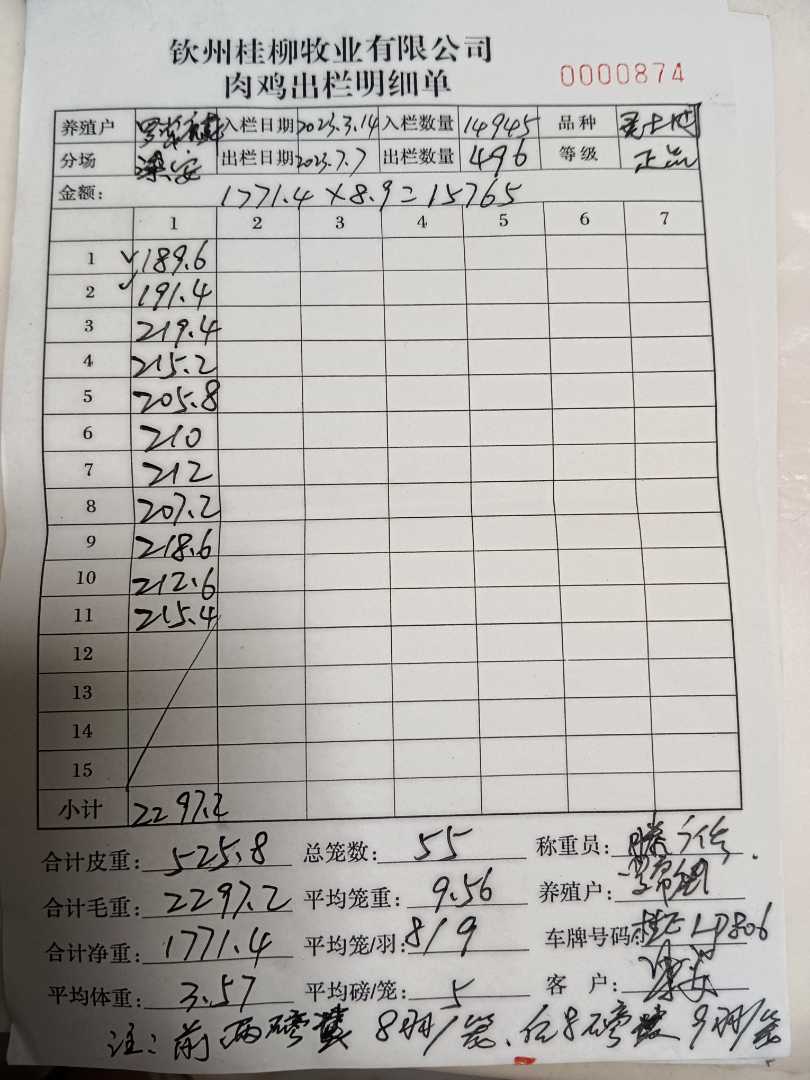 钦州桂柳牧业有限公司
肉鸡出栏明细单 0000874
养殖户 入栏日期 2023.3.14 入栏数量 14945 品种
分场 出栏日期 2023.7.7 出栏数量 496 等级 正品
金额: 1771.4×8.9=15765
1 2 3 4 5 6 7
1 189.6
2 191.4
3 219.4
4 215.2
5 205.8
6 210
7 212
8 207.2
9 218.6
10 212.6
11 215.4
12
13
14
15
小计 2297.2
合计皮重: 525.8 总笼数: 55 称重员:
合计毛重: 2297.2 平均笼重: 9.56 养殖户:
合计净重: 1771.4 平均笼/羽: 8/9 车牌号码:
平均体重: 3.57 平均磅/笼: 5 客 户:
注: 前两磅装8羽/笼、后9磅装9羽/笼